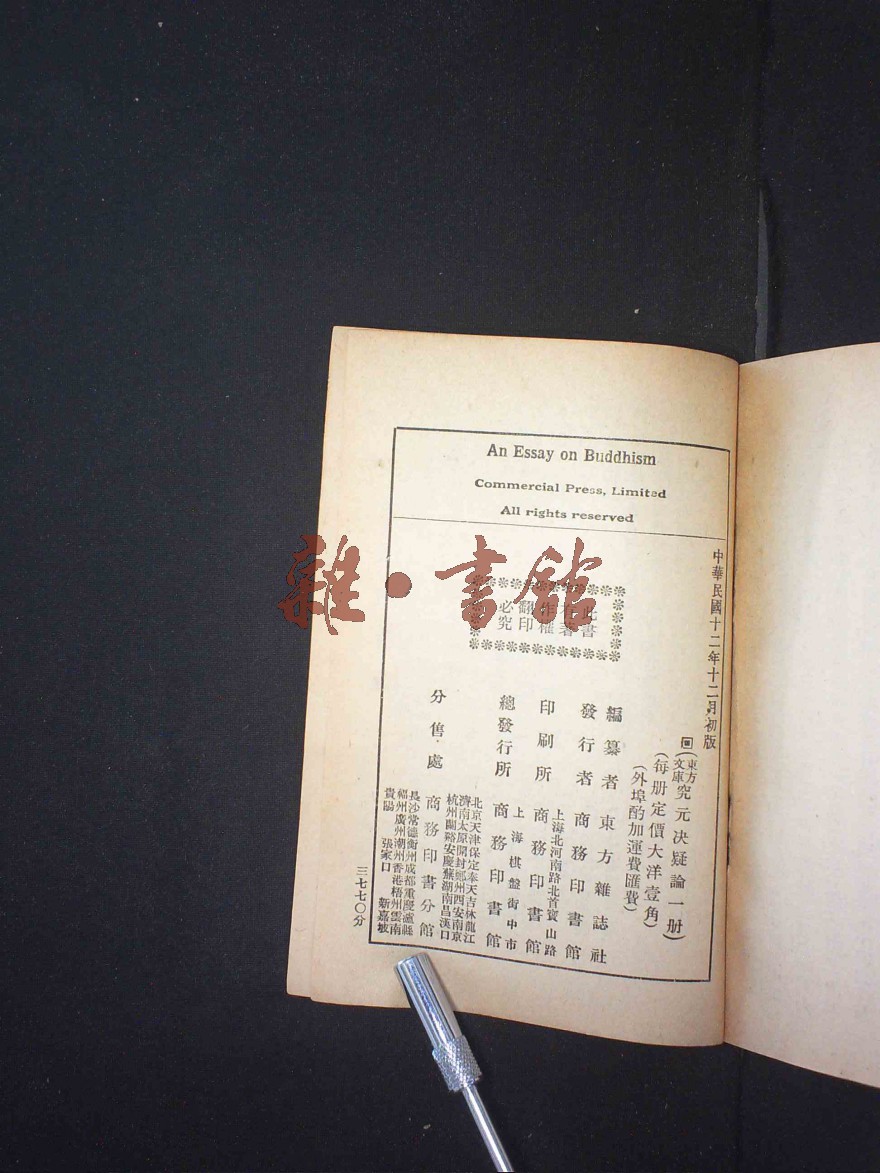 An Essay on Buddhism
Commercial Press, Limited
All rights reserved
中華民國十二年十二月初版
(東方文庫究元決疑論一册)
(每册定價大洋壹角)
(外埠酌加運費匯費)
此書有著作權翻印必究
編纂者 東方雜誌社
發行者 商務印書館
印刷所 上海北河南路北首寶山路 商務印書館
總發行所 上海棋盤街中市 商務印書館
分售處 商務印書分館
北京天津保定奉天吉林龍江
濟南太原開封鄭州西安南京
杭州蘭谿安慶蕪湖南昌漢口
長沙常德衡州成都重慶瀘縣
福州廣州潮州香港梧州雲南
貴陽 張家口 新嘉坡
三七七〇分
雜·書館